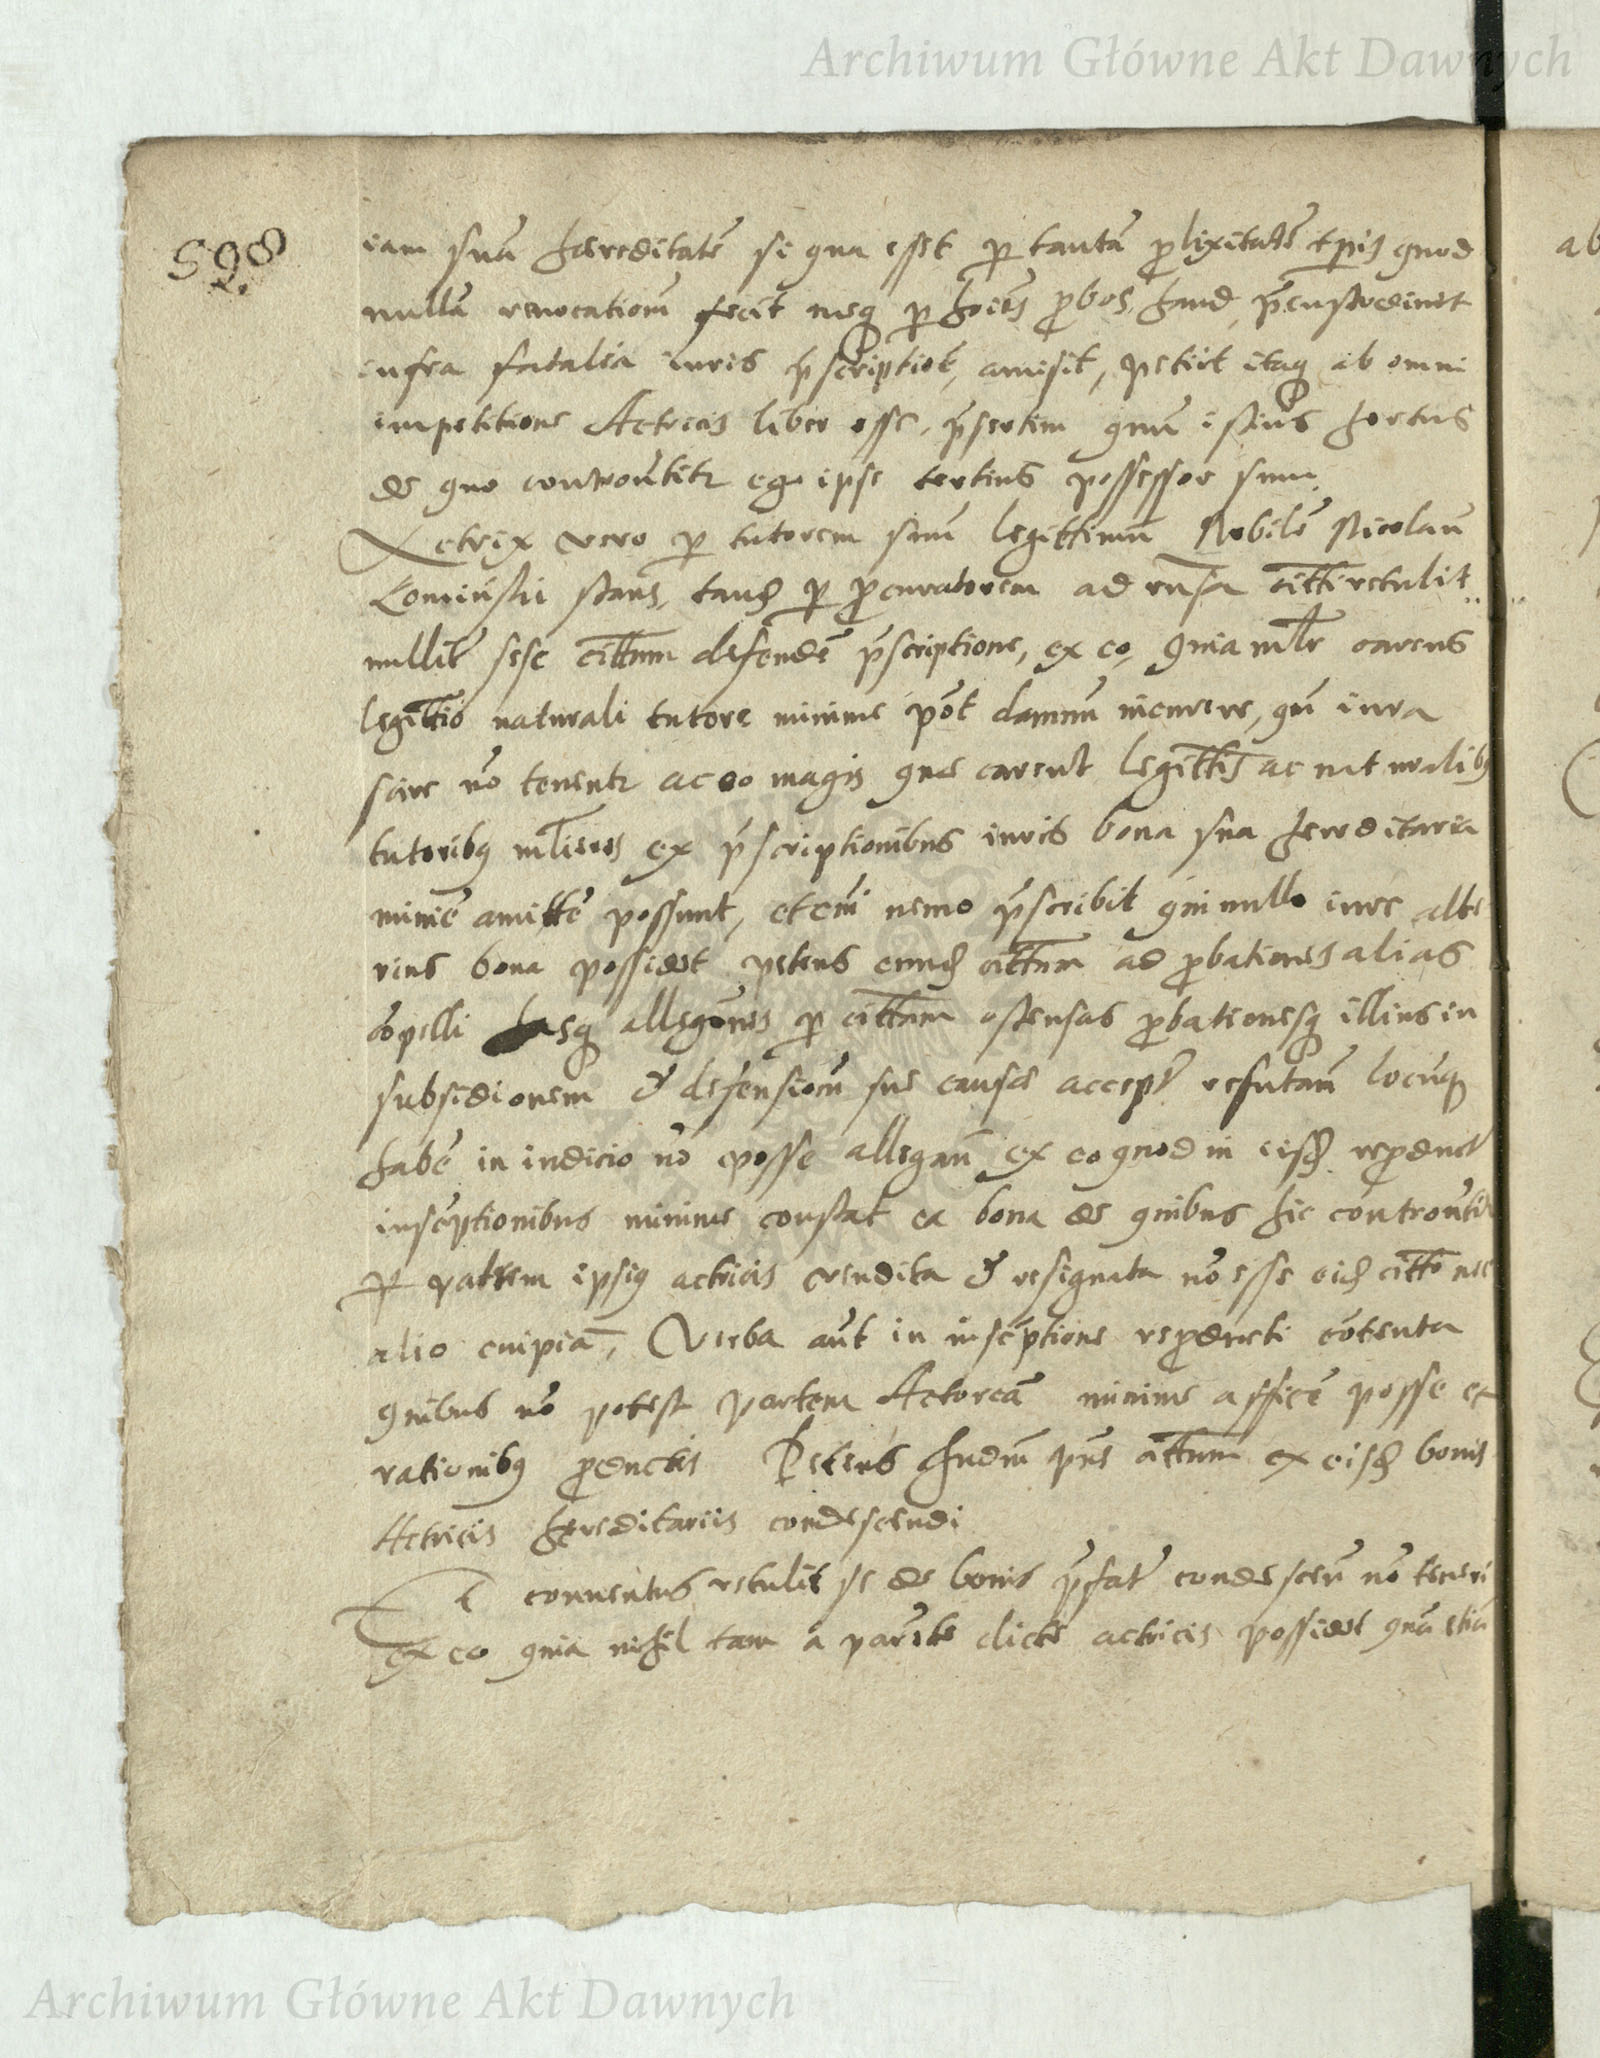 Archiwum Główne Akt Dawnych
598
iam suā haereditatē si qua esset p tantā plixitatē tpis quod
nullā reuocationē fecit neq p hoīes probos haud
infra fatalia iuris pscriptiōē, amisit, petiit itaq ab omni
impetitione Actricis liber esse, psertim quū istius hortus
de quo controūtitr ego ipse tertius possessor sum
Actrix vero p tutorem suū legittimū Nobilē Nicolaū
stans, tandē p procuratorem ad citti retulit
nullit sese cittum defendē pscriptione, ex eo, quia mlr carens
legittīo naturali tutore minime pōt damnū incurrere, qū iura
scire nō tenentr ac eo magis quae carent legittīs ac naturalibq
tutoribq mlieres ex pscriptionibus iuris bona sua hereditaria
minīe amittē possunt, etenī nemo pscribit qui nullo iure alte
rius bona possidet petens eundē cittum ad probationes alias
cōpelli hasq allegōnes p cittum ostensas probationesq illius in
subsidionem & defensionē sue causae accept refutaūt locūq
habē in iudicio nō posse allegaūt ex eo quod in eisdē reproduct
inscriptionibus minime constat ea bona de quibus hic controūtitr
p patrem ipsiq actricis vendita & resignata nō esse eidē citto nec
alio cuipiā, Verba aūt in inscriptione reproducti cōtenta
quibus nō potest partem Actoreā minime afficē posse ex
rationibq productis Petens Iudiū pns cittum ex eisdē bonis
Actricis hereditariis condescendi
Et conuentus retulit se de bonis pfat condescen nō teneri
ex eo quia nihil tam a parēte dicte actricis possidet quā etiā
ab
Archiwum Główne Akt Dawnych